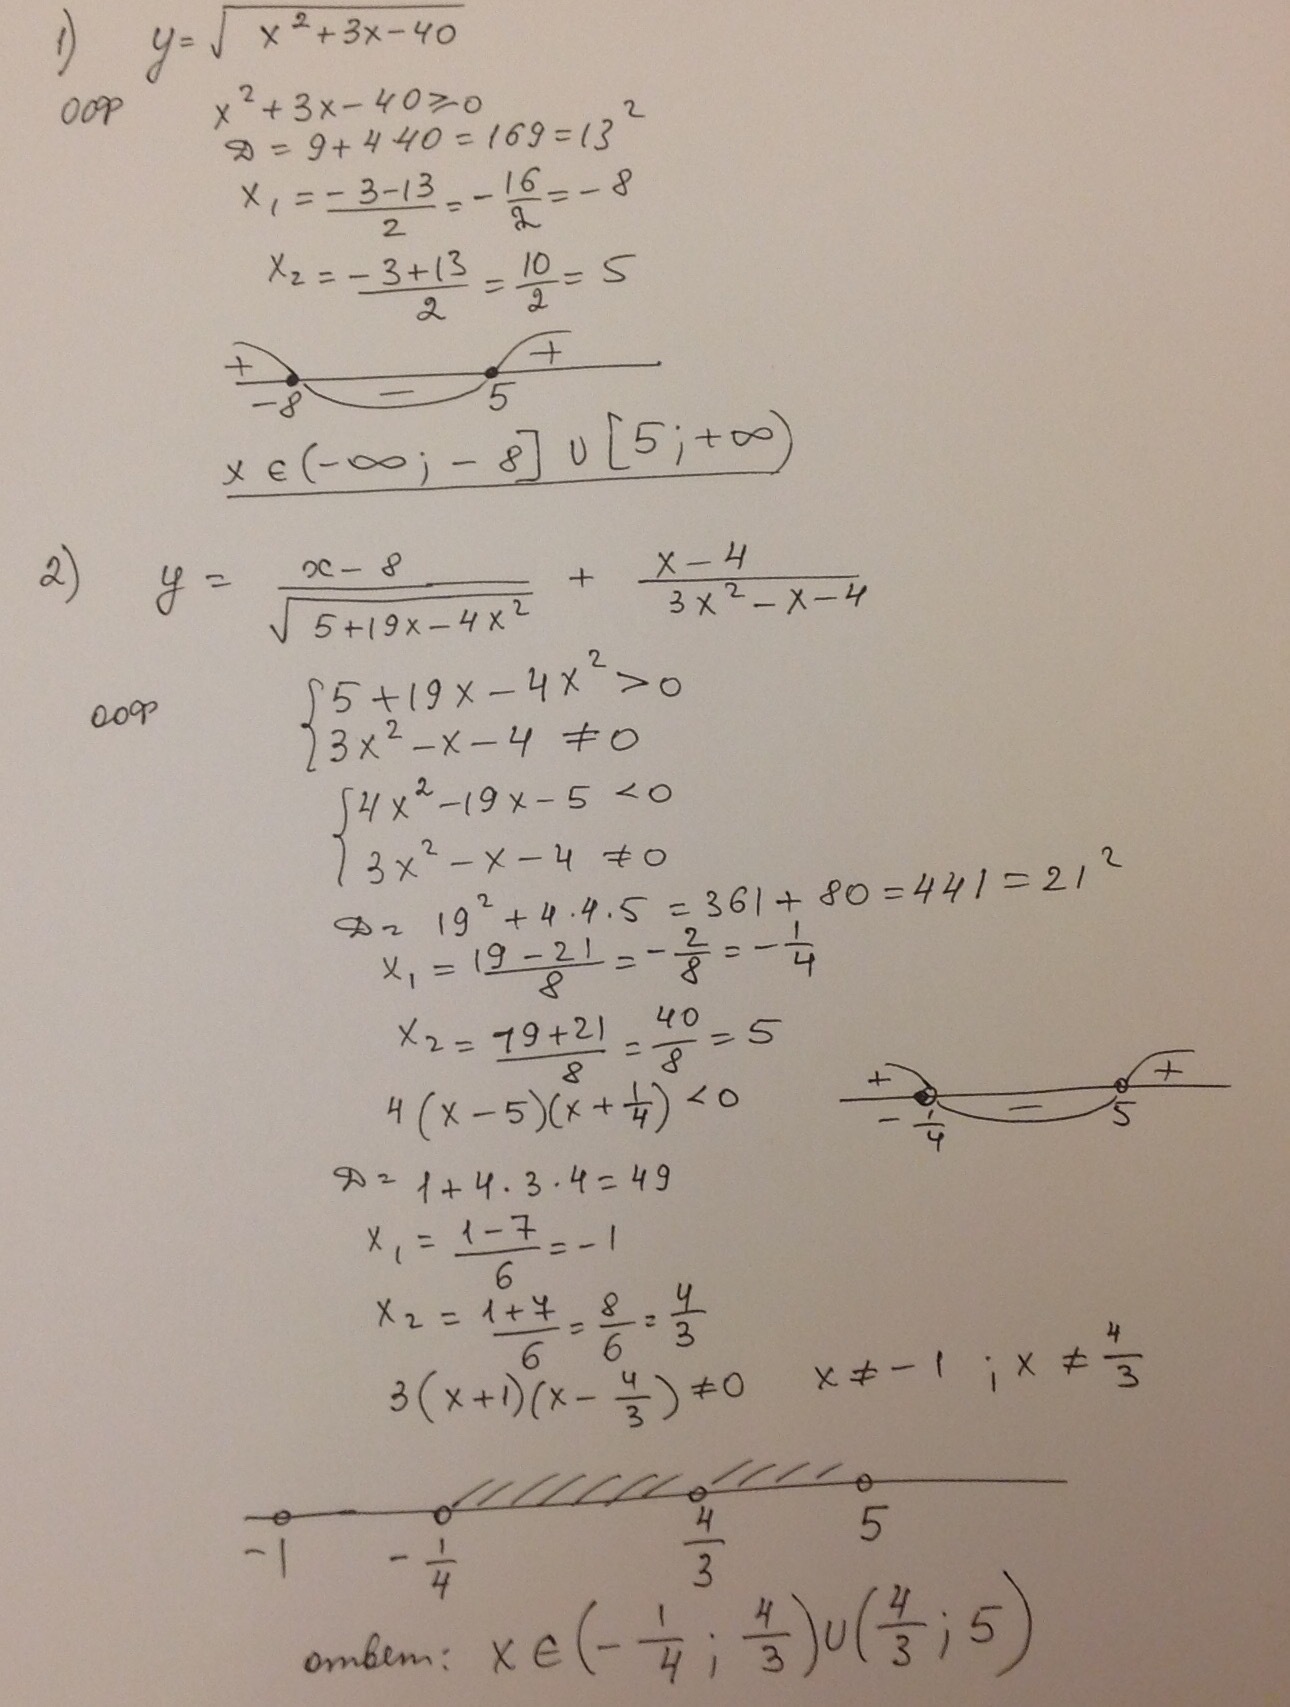 1) y = √(x² + 3x - 40)
ООФ x² + 3x - 40 ≥ 0
D = 9 + 4·40 = 169 = 13²
x₁ = (-3-13)/2 = -16/2 = -8
x₂ = (-3+13)/2 = 10/2 = 5
+ - +
-8 5
x ∈ (-∞; -8] ∪ [5; +∞)
2) y = (x-8)/√(5+19x-4x²) + (x-4)/(3x²-x-4)
ООФ { 5 + 19x - 4x² > 0
3x² - x - 4 ≠ 0
{ 4x² - 19x - 5 < 0
3x² - x - 4 ≠ 0
D = 19² + 4·4·5 = 361 + 80 = 441 = 21²
x₁ = (19-21)/8 = -2/8 = -1/4
x₂ = (19+21)/8 = 40/8 = 5
4(x-5)(x+1/4) < 0
+ - +
-1/4 5
D = 1 + 4·3·4 = 49
x₁ = (1-7)/6 = -1
x₂ = (1+7)/6 = 8/6 = 4/3
3(x+1)(x-4/3) ≠ 0 x ≠ -1 ; x ≠ 4/3
-1 -1/4 4/3 5
ответ: x ∈ (-1/4; 4/3) ∪ (4/3; 5)